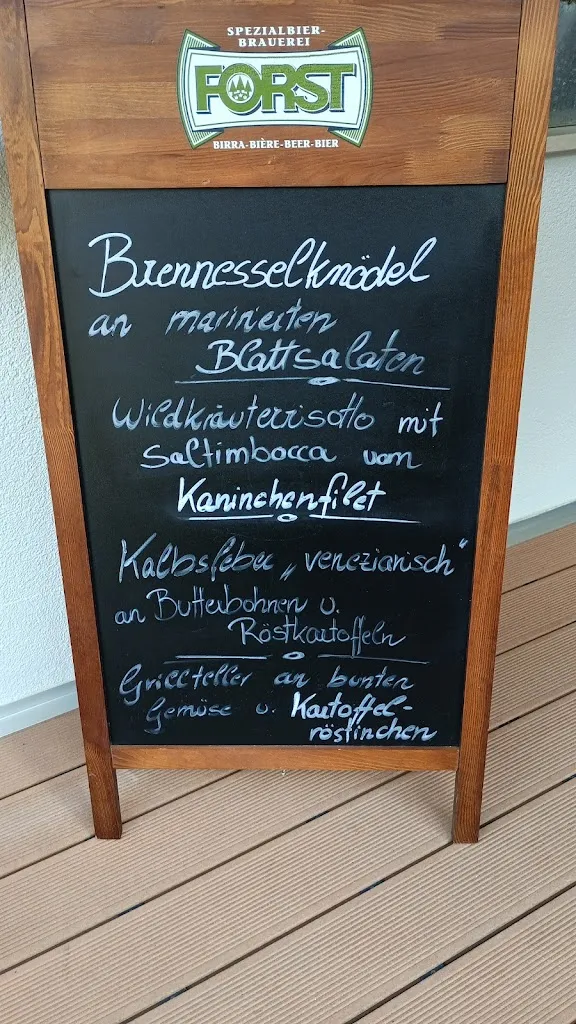 SPEZIALBIER-
BRAUEREI
FORST
BIRRA-BIÈRE-BEER-BIER
Brennesselknödel
an marinierten
Blattsalaten
Wildkräuterrisotto mit
Saltimbocca vom
Kaninchenfilet
Kalbsleber „venezianisch“
an Butterbohnen u.
Röstkartoffeln
Grillteller an bunten
Gemüse u. Kartoffel-
röstinchen